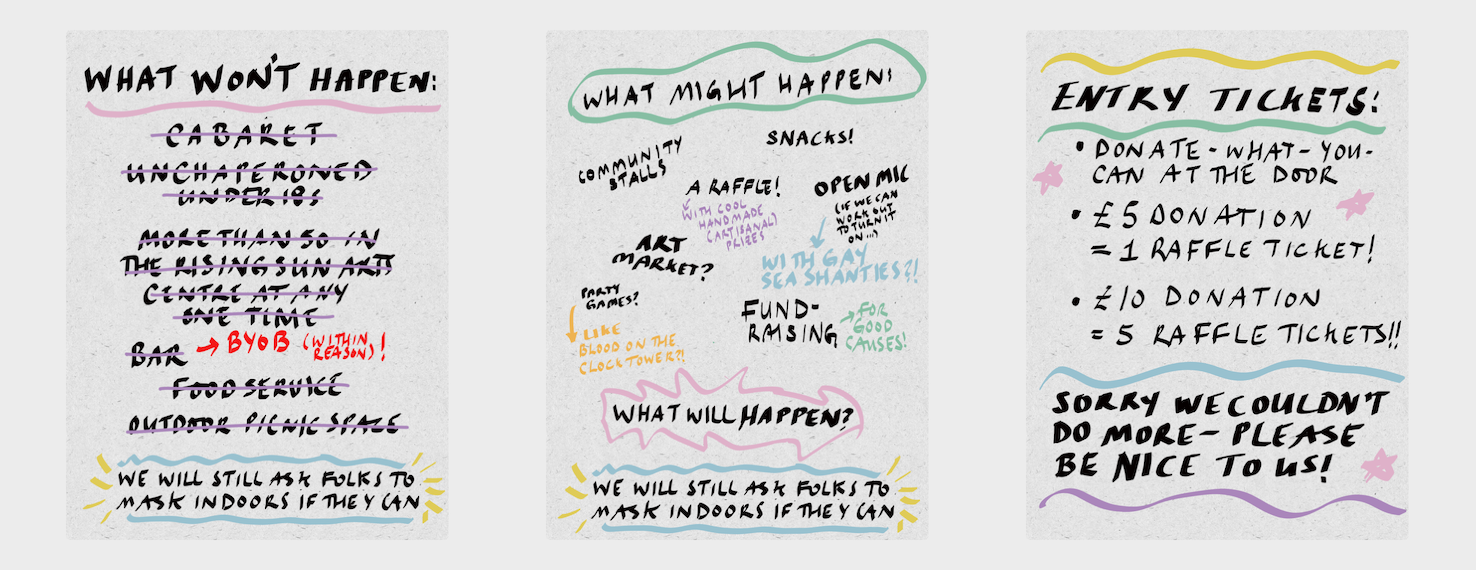 WHAT WON'T HAPPEN:
CABARET
UNCHAPERONED
UNDER 18S
MORE THAN 50 IN
THE RISING SUN ARTS
CENTRE AT ANY
ONE TIME
BAR → BYOB (WITHIN
REASON)!
FOOD SERVICE
OUTDOOR PICNIC SPACE
WE WILL STILL ASK FOLKS TO
MASK INDOORS IF THEY CAN
WHAT MIGHT HAPPEN:
COMMUNITY
STALLS
SNACKS!
A RAFFLE!
WITH COOL
HANDMADE
(ARTISANAL)
PRIZES
OPEN MIC
(IF WE CAN
WORK OUT
TO TURN IT
ON...)
WITH GAY
SEA SHANTIES?!
ART
MARKET?
PARTY
GAMES?
LIKE
BLOOD ON THE
CLOCKTOWER?!
FUND-
RAISING
→ FOR
GOOD
CAUSES!
WHAT WILL HAPPEN?
WE WILL STILL ASK FOLKS TO
MASK INDOORS IF THEY CAN
ENTRY TICKETS:
• DONATE-WHAT-YOU-
CAN AT THE DOOR
• £5 DONATION
= 1 RAFFLE TICKET!
• £10 DONATION
= 5 RAFFLE TICKETS!!
SORRY WE COULDN'T
DO MORE - PLEASE
BE NICE TO US!